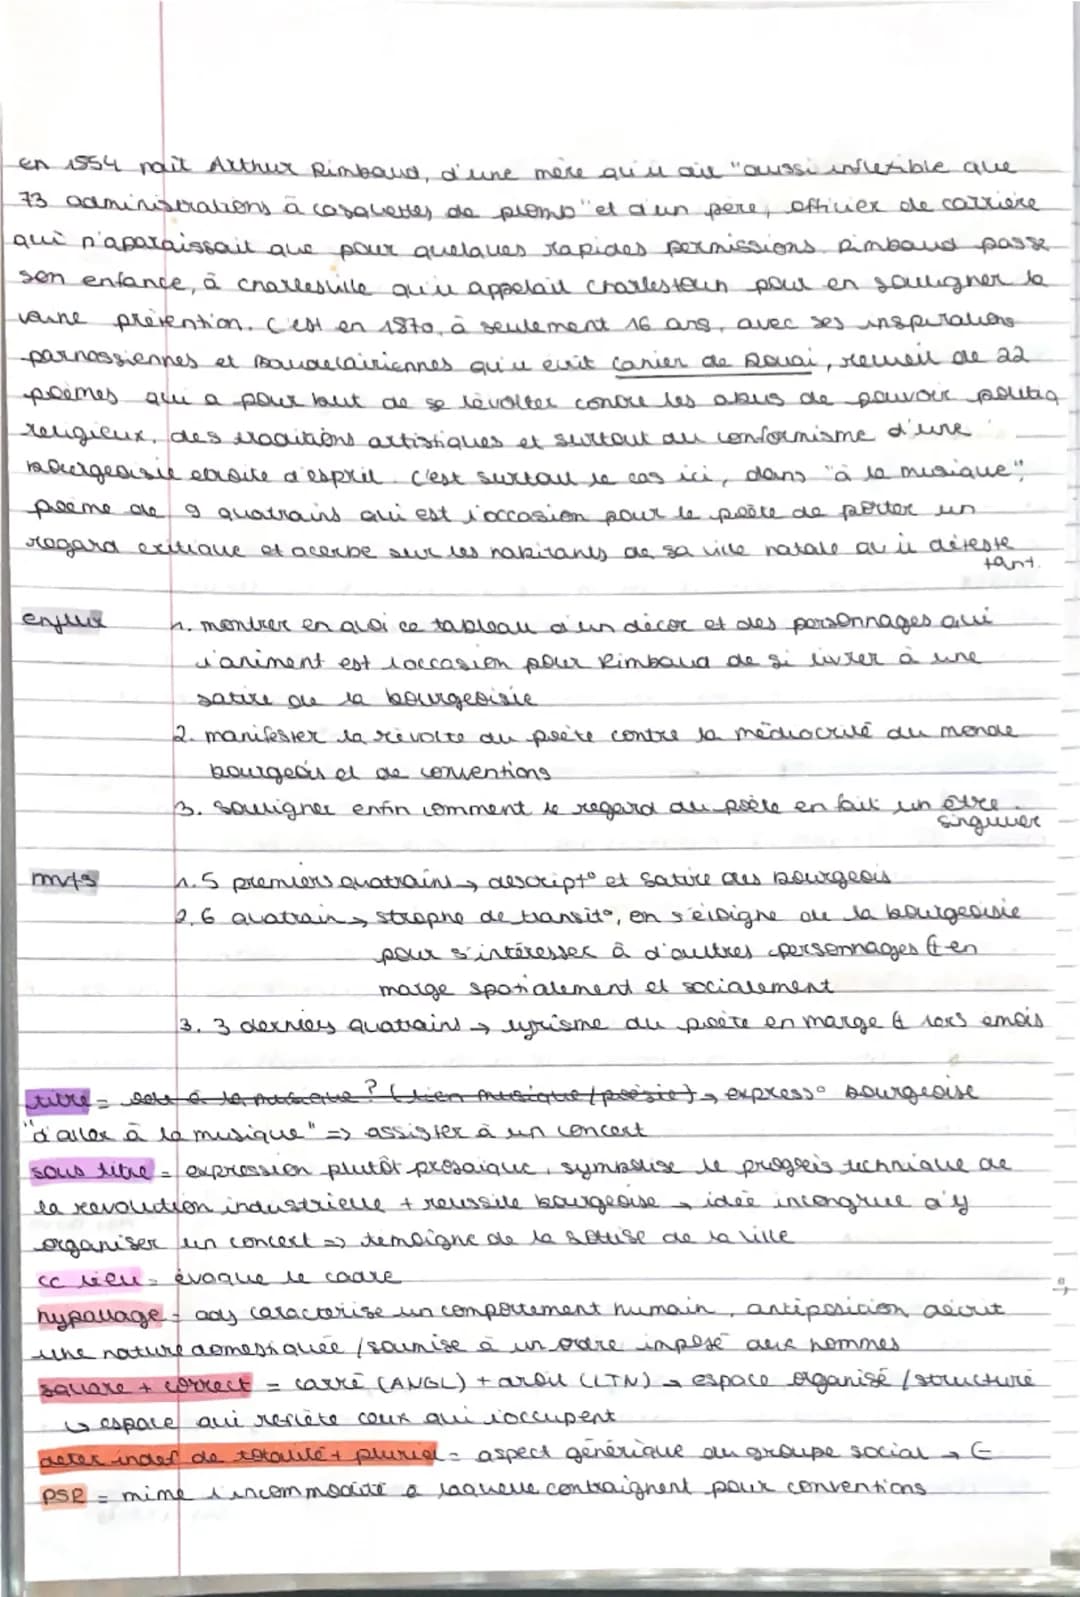 en 1854 nait Arthur Rimbaud, d'une mère qu'il dit "aussi inflexible que
73 administrations à casquettes de plomb" et d'un père, officier de carrière
qui n'aparaissait que pour quelques rapides permissions. Rimbaud passe
son enfance, à charleville qu'il appelait charlestown pour en souligner la
vaine prétention. C'est en 1870, à seulement 16 ans, avec ses inspirations
parnassiennes et Baudelairiennes qu'il écrit Cahier de Douai, recueil de 22
poèmes qui a pour but de se révolter contre les abus de pouvoir politiq
religieux, des traditions artistiques et surtout du conformisme d'une
Bourgeoisie étroite d'esprit. C'est surtout le cas ici, dans "à la musique",
poème de 9 quatrains qui est l'occasion pour le poète de porter un
regard critique et acerbe sur les habitants de sa ville natale qu'il déteste
tant.
enjeux 1. montrer en quoi ce tableau d'un décor et des personnages qui
l'animent est l'occasion pour Rimbaud de si livrer à une
satire de la bourgeoisie
2. manifester la révolte du poète contre la médiocrité du monde
bourgeois et de conventions
3. souligner enfin comment le regard du poète en fait un être
singulier
mvts 1. 5 premiers quatrains → descript° et satire des Bourgeois
2. 6 quatrain → strophe de transit°, on s'éloigne de la bourgeoisie
pour s'intéresser à d'autres personnages & en
marge spatialement et socialement
3. 3 derniers quatrains → lyrisme du poète en marge & 1ers émois
titre = ode à la musique ? (lien musique/poésie) → express° Bourgeoise
"d'aller à la musique" => assister à un concert
sous titre = expression plutôt prosaique, symbolise le progrès technique de
la revolution industrielle + reussite bourgeoise → idée incongrue d'y
organiser un concert => témoigne de la sottise de la ville
cc lieu = évoque le cadre
hypallage = adj caractérise un comportement humain, antéposicion décrit
une nature domestiquée / soumise à un ordre imposé aux hommes
square + correct = carré (ANGL) + droit (LTN) → espace organisé / structuré
↳ espace qui reflète ceux qui l'occupent
deter indef de totalité + pluriel = aspect générique du groupe social →
PSR = mime l'incommodité à laquelle contraignent pour conventions